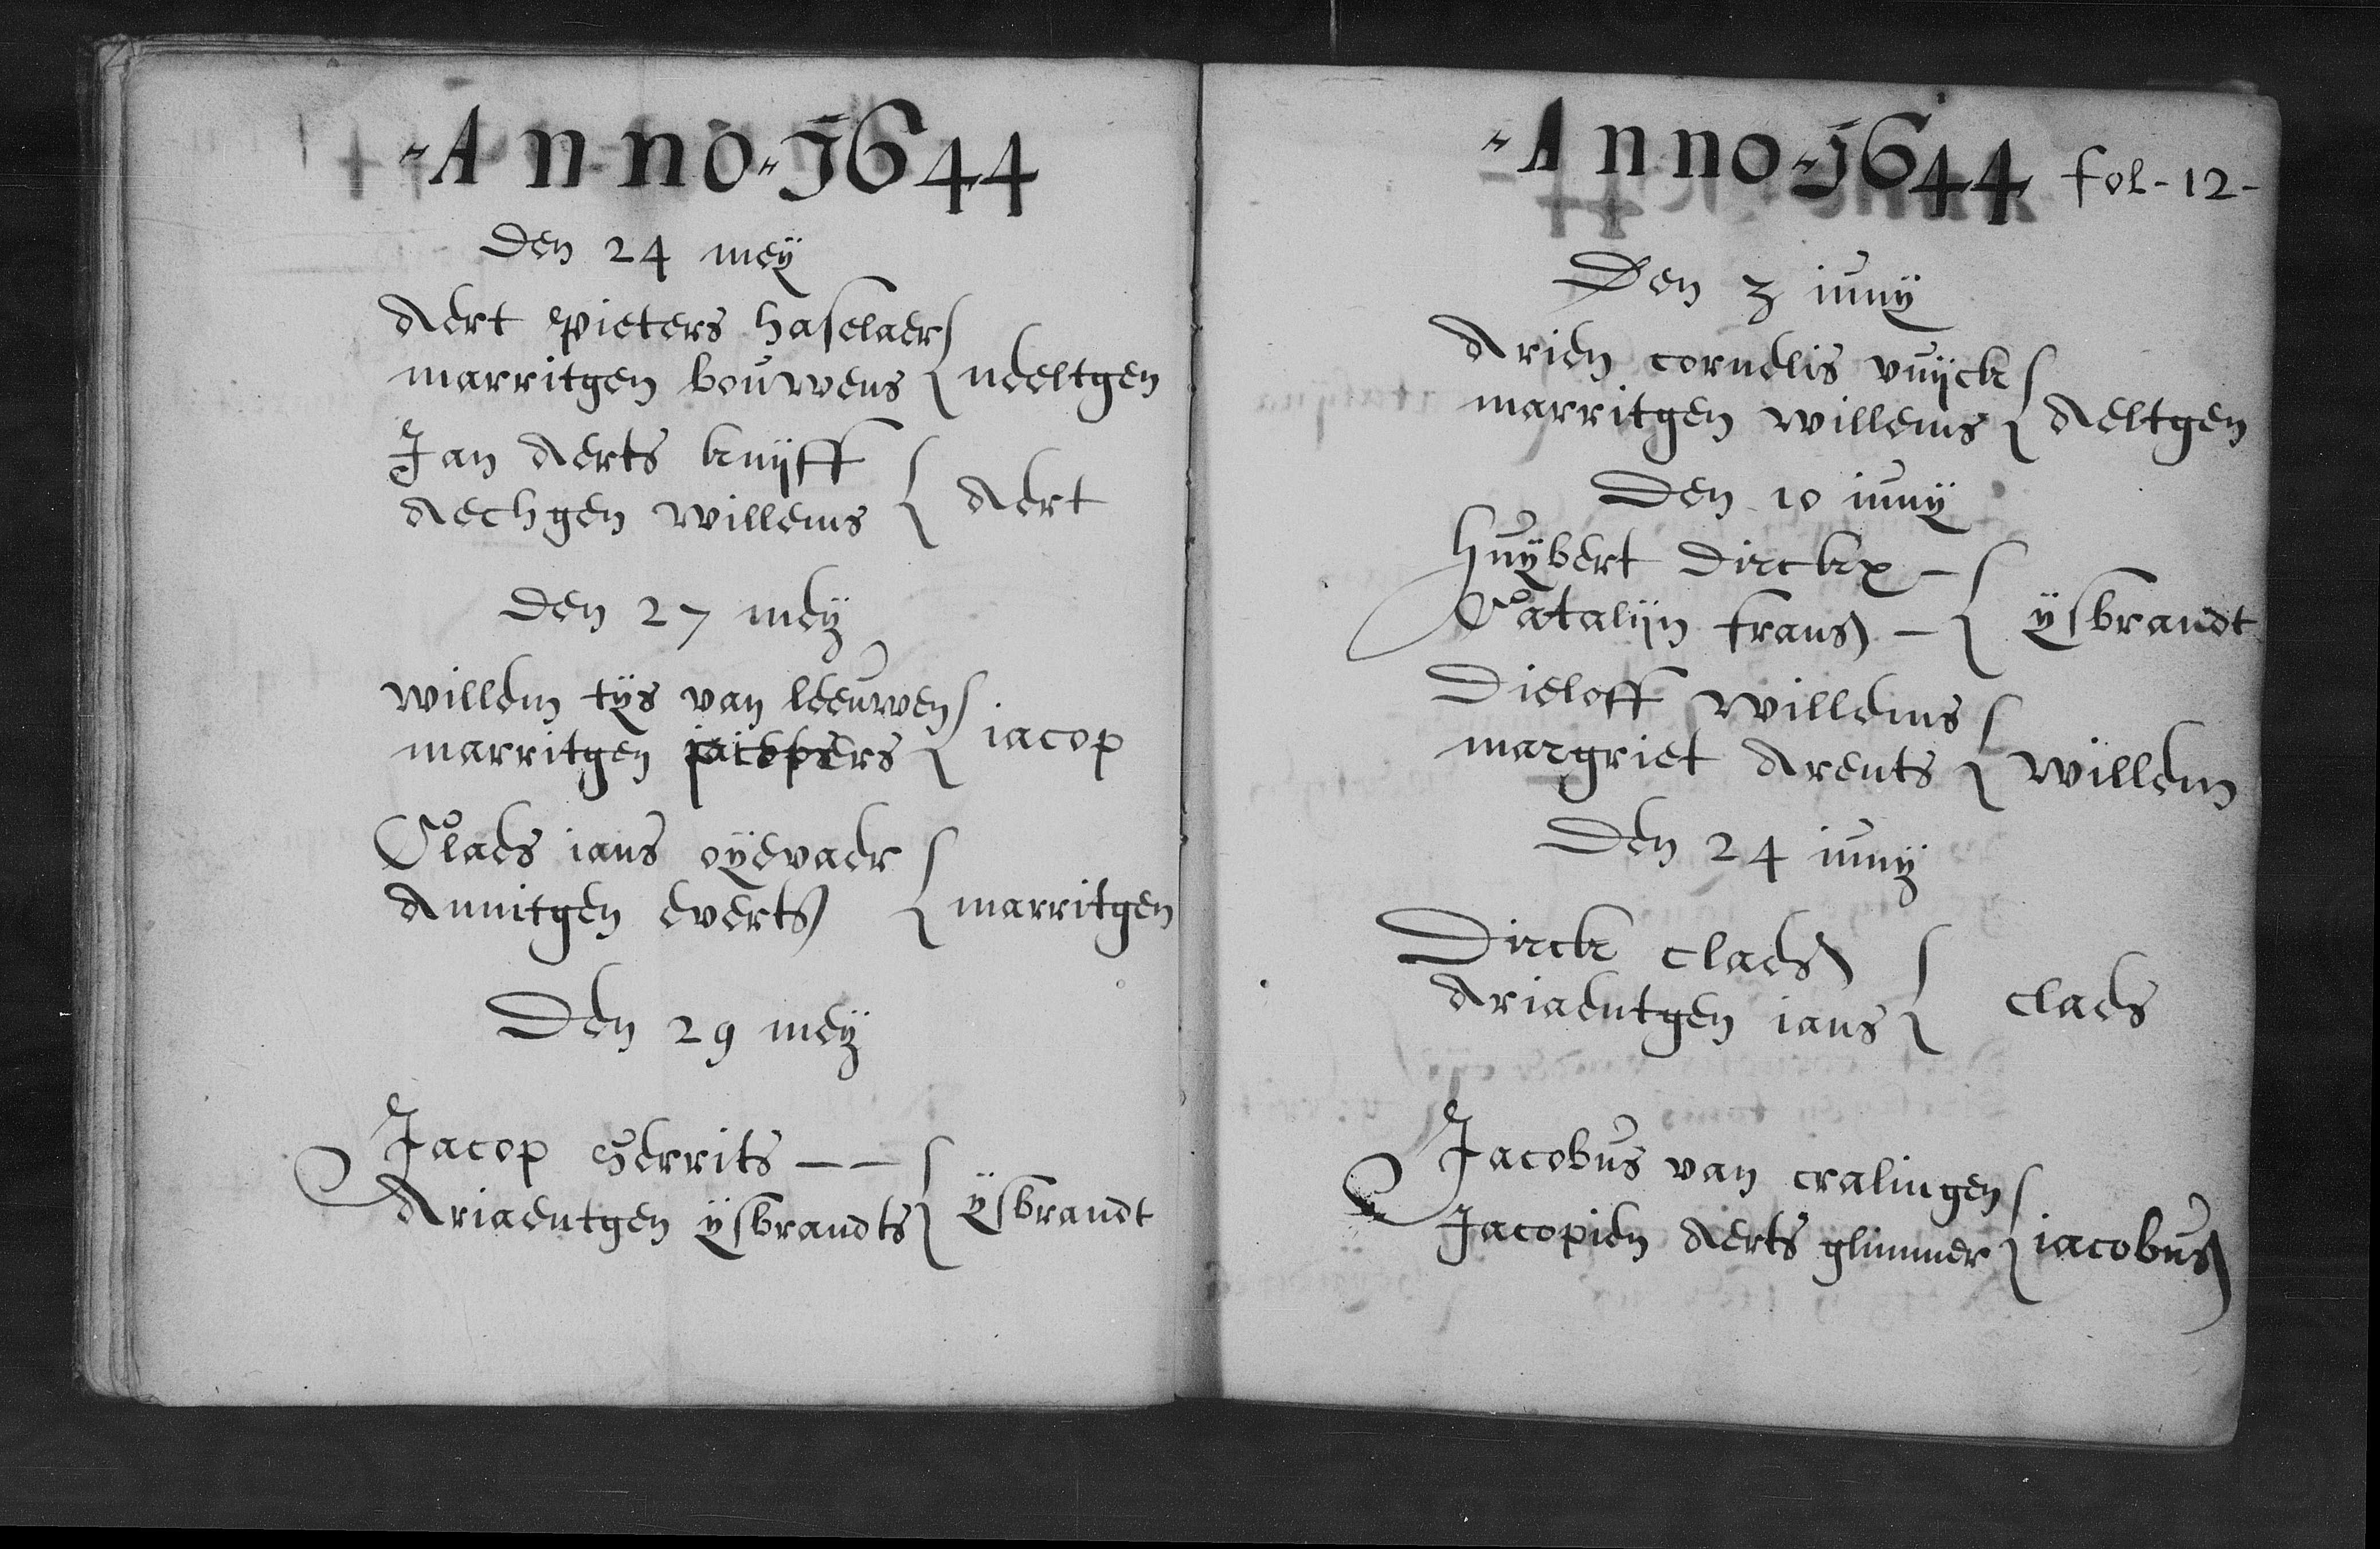 Anno 1644
Den 24 meij
Aert pieters haselaer
marritgen bouwens { neeltgen
Jan Aerts knijff
Aechgen willems { Aert
Den 27 meij
willem tijs van leeuwen
marritgen { iacop
Claes ians oijevaer
Annitgen everts { marritgen
Den 29 meij
Jacop Gerrits
Ariaentgen ijsbrandts { ijsbrandt
Anno 1644 fol-12-
Den 3 iunij
Arien cornelis vuijck
marritgen willems { Aeltgen
Den 10 iunij
huijbert Dirckx
Catalijn frans { ijsbrandt
Dieloff willems
margriet Arents { willem
Den 24 iunij
Dirck claes
Ariaentgen ians { claes
Jacobus van cralingen
Jacopien Aerts glimmer { iacobus